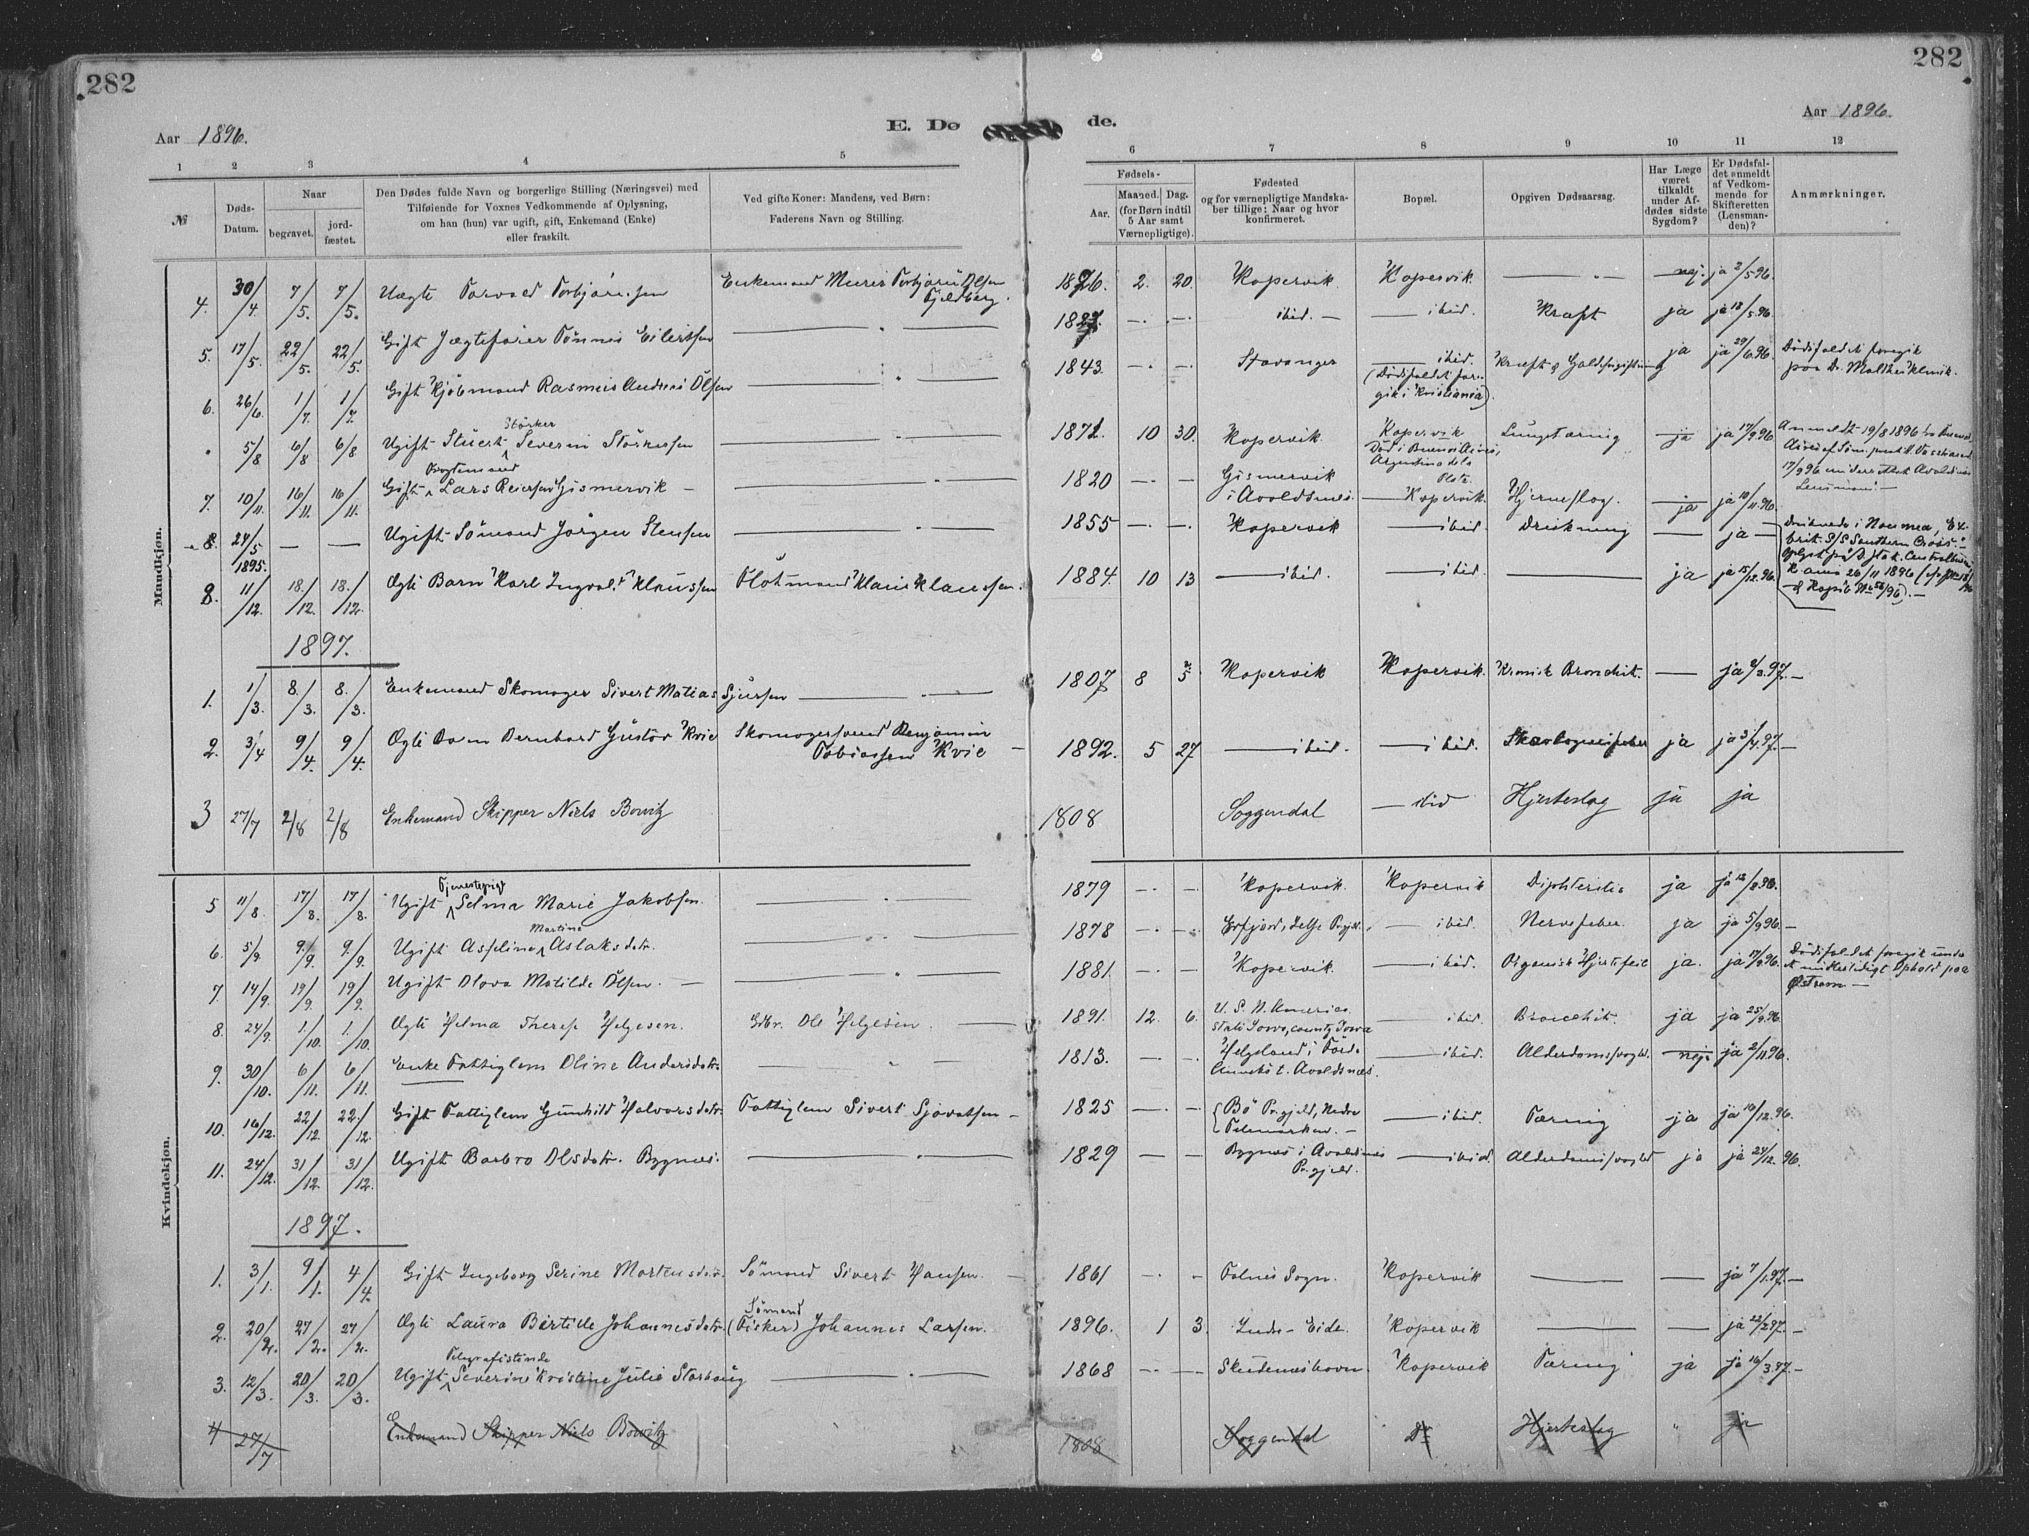 282
282
Aar 1896.
E. Dø
de.
Aar 1896.
1 2 3 4 5 6 7 8 9 10 11 12
№
Døds-Datum.
Naar
begravet.
jord-fæstet.
Den Dødes fulde Navn og borgerlige Stilling (Næringsvei) med
Tilføiende for Voxnes Vedkommende af Oplysning,
om han (hun) var ugift, gift, Enkemand (Enke)
eller fraskilt.
Ved gifte Koner: Mandens, ved Børn:
Faderens Navn og Stilling.
Fødsels-
Aar.
Maaned. Dag.
(for Børn indtil
5 Aar samt
Værnepligtige).
Fødested
og for værnepligtige Mandska-
ber tillige: Naar og hvor
konfirmeret.
Bopæl.
Opgiven Dødsaarsag.
Har Læge
været
tilkaldt
under Af-
dødes sidste
Sygdom?
Er Dødsfal-
det anmeldt
af Vedkom-
mende for
Skifteretten
(Lensman-
den)?
Anmærkninger.
Mandkjøn.
4. 30/4. 7/5. 7/5. Uægte Torvald Torbjörnsen Enkemand Murer Torbjörn Olsen Fjeldberg. 1876. 2. 20. Kopervik Kopervik. — " — nej. ja 2/5 96.
5. 17/5. 22/5. 22/5. Gift Jægtefører Tönnes Eilertsen — " — 1827. —. —. ibid. — — ibid. Kræft ja ja 18/5 96.
6. 26/6. 1/7. 1/7. Gift Kjöbmand Rasmus Andreas Olsen — " — 1843. —. —. Stavanger — ibid. (Dödsfaldet foregik i Kristiania). Kræft & Galdeforgiftning ja ja 29/6 96. Dödsfaldet foregik paa Dr. Malthes Klinik.
" 5/8 6/8 6/8 Ugift Stuert Störker Severin Störkersen — " — 1871. 10 30. Kopervik Kopervik Död i Buenos Aires, Argentina de la Plata Lungtæring — ja ja 17/9 96 Anmeldt 19/8 1896
17/9 96 underrettet Avaldsnes
Lensmand. —
7. 10/11. 16/11. 16/11. Gift Forgtemand Lars Reiersen Gismervik — — " — 1820 —. —. Gismervik i Avaldsnes. — Kopervik. Hjerneslag. — ja ja 10/11 96.
8. 24/5 1895. — — Ugift Sömand Jörgen Stensen — " — 1855 —. —. Kopervik — ibid Drukning — — ja — Druknede i Noumea,
brit. S/S Southern Cross.
8. 11/12. 18./12. 18./12. Ægte Barn Karl Ingvald Klaussen Flötmand Klaus Klaussen. 1884. 10 13 — ibid. — ibid. — ja ja 15/12 96.
1897.
1. 1/3. 8./3. 8./3. Enkemand Skomager Sivert Matias Sjursen — " — 1807 8 5 Kopervik Kopervik. Kronisk Bronchit. — ja 2/3 97. —
2. 3/4 9/4. 9/4. Ægte Barn Bernhard Gustav Kvie Skomagersvend Benjamin Tobiassen Kvie — 1892. 5 27 — ibid. — ibid. Skarlagensfeber ja ja 3/4 97. —
3 27/7 2/8 2/8 Enkemand Skipper Niels Bowitz 1808 Soggendal — ibid Hjerteslag ja ja
Kvindekjøn.
5 11/8. 17/8. 17/8. Ugift Tjenestepige Selma Marie Jakobsen. — " — 1879 —. —. Kopervik. Kopervik Diphteritis ja ja 12/8 96.
6. 5/9. 9./9. 9./9. Ugift Asseline Martine Aslaksdatr. — " — 1878 —. —. Erfjord, Jelse Prgjld. — ibid. Nervefeber. ja ja 5/9 96. —
7 14/9. 19/9. 19/9. Ugift Olava Matilde Olsen. — — " — 1881. —. —. Kopervik. — ibid. Organisk Hjertefeil ja. ja 17/9 96. Dödsfaldet foregik under
et midlertidigt Ophold paa
Østrem —
8. 24/9. 1./10. 1./10. Ægte Helma Therese Helgesen. Gdbr. Ole Helgesen. — 1891. 12. 6. U. S. N. Amerika stat Iowa, county Iowa — ibid. Bronchit. ja ja 25/9 96.
9. 30/10. 6/11. 6/11. Enke Fattiglem Oline Andersdatr. — " — 1813. —. —. Helgeland i Förde Annekst. Avaldsnes. — ibid. Alderdomssvaghd. nej ja 2/11 96.
10. 16/12. 22/12. 22/12. Gift Fattiglem Gunhild Halvorsdatr. Fattiglem Sivert Sjovatsen — 1825 —. —. Bö Prgjeld, Nedre Telemarken. — — ibid. Tæring ja ja 16/12 96.
11. 24/12. 31/12. 31/12. Ugift Barbro Olsdatr. Bygnes. — " — 1829 —. —. Bygnes i Avaldsnes Prgjeld. — ibid Alderdomssvaghd ja ja 24/12 96.
1897.
1. 3/1. 9/1. 4/4. Gift Ingeborg Serine Mortensdatr. Sömand Sivert Hansen. — 1861 —. — Falnes Sogn. Kopervik — — ja 7/1 97. —
2. 20/2. 27/2. 27/2. Ægte Laura Bertille Johannesdatr. (Fisker) Sömand Johannes Larsen. 1896. 1 3. Indre-Eide. Kopervik — — ja 22/2 97. —
3. 12/3. 20/3. 20/3. Ugift Telegrafistinde Severine Kristine Julie Storhaug — " — 1868 —. —. Skudeneshavn. Kopervik Tæring ja ja 16/3 97. —
4 27/7 Enkemand Skipper Niels Bowitz 1808 Soggendal Do Hjerteslag " ja